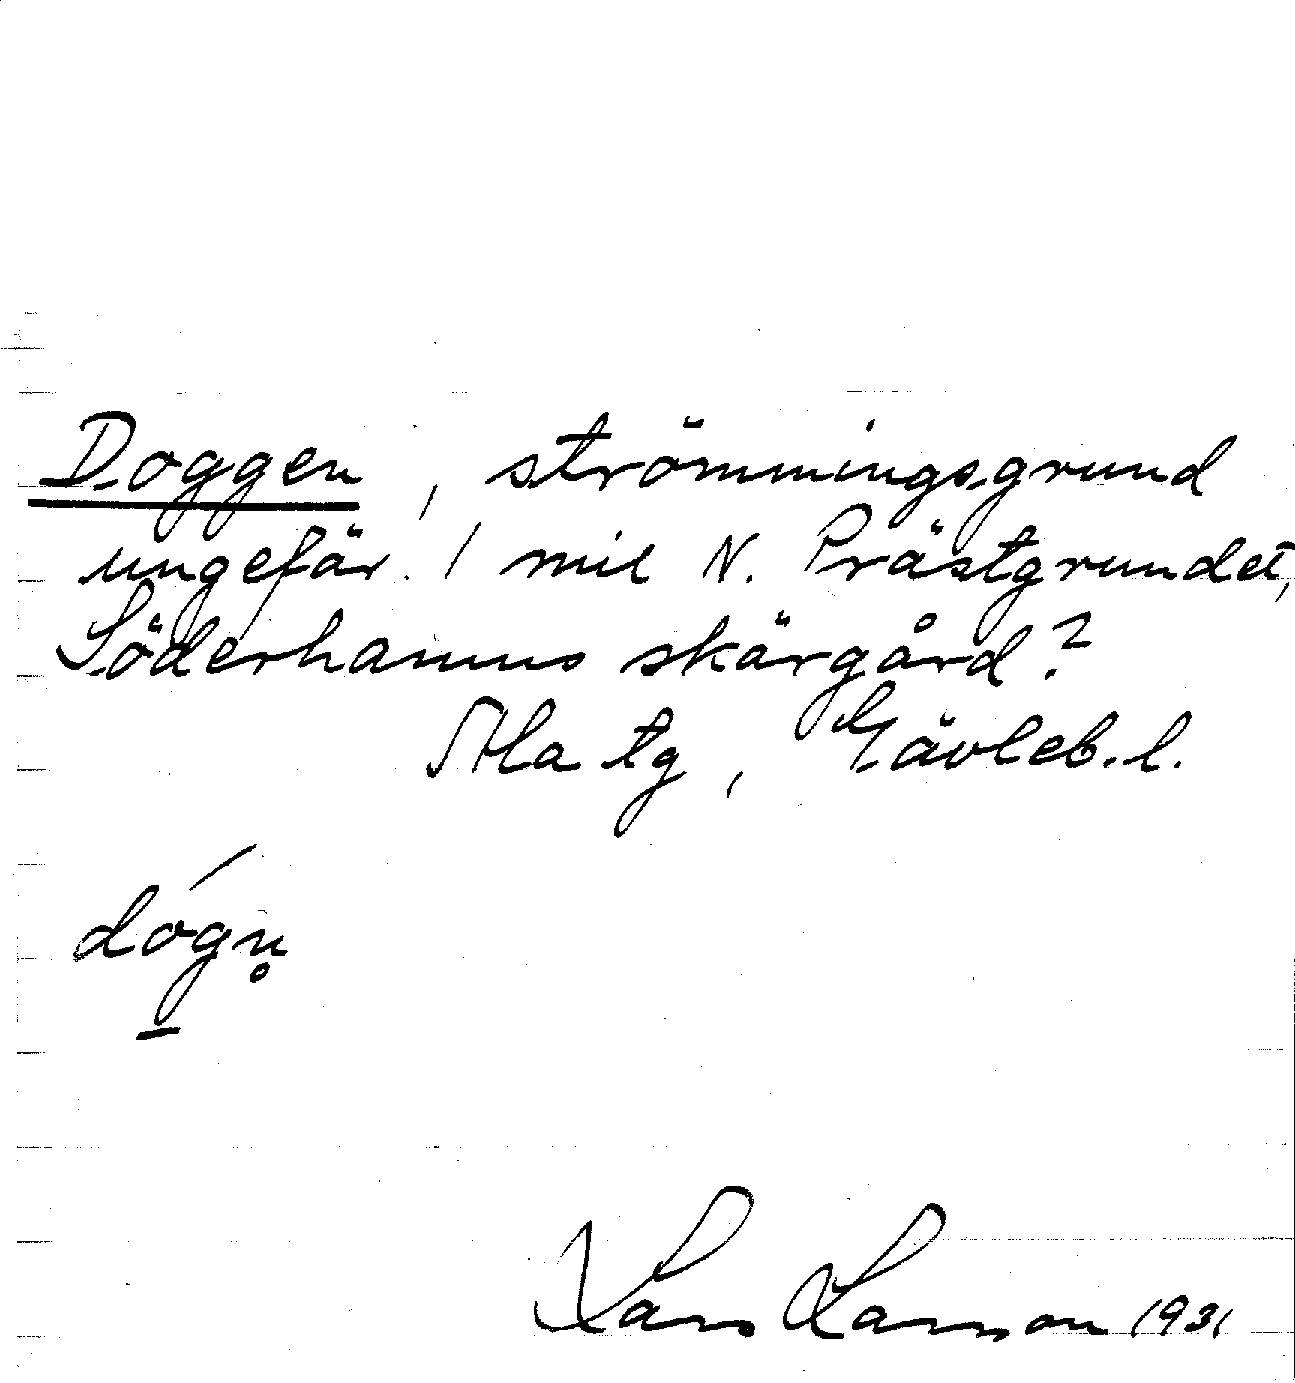 Doggen, strömmingsgrund
ungefär 1 mil N. Prästgrundet,
Söderhamns skärgård?
Ala tg, Gävleb. l.
dógn̥
Lars Larsson 1931